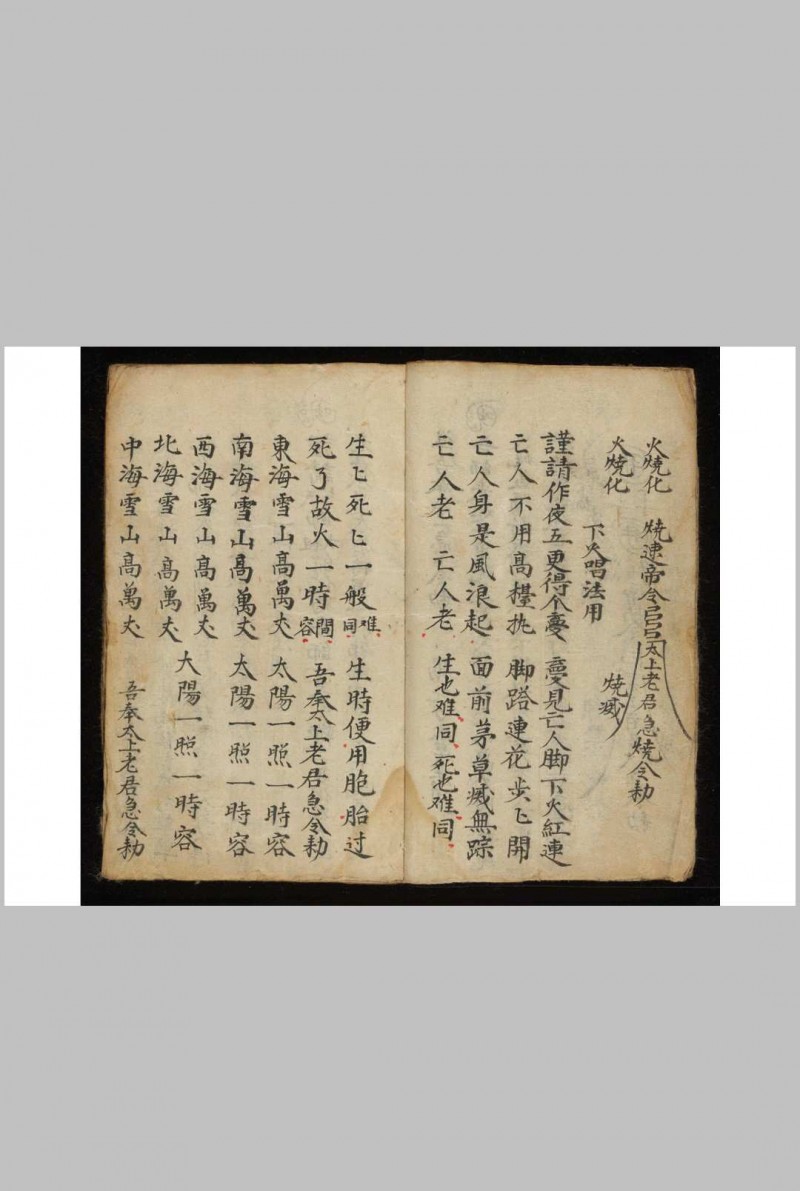 火燒化
火燒化
燒速帝令弓弓太上老君急燒令勅
燒滅
下火唱法用
謹請作夜五更得个夣 夣見亡人脚下火紅連
亡人不用高擡扥 脚踏連花步匕開
亡人身是風浪起 面前茅草滅無踪
亡人老 亡人老 生也难同 死也难同
生匕死匕一般难同 生時便用胞胎过
死了故火一時間容 吾奉太上老君急令勅
東海雪山高萬丈 太陽一照一時容
南海雪山高萬丈 太陽一照一時容
西海雪山高萬丈
北海雪山高萬丈 大陽一照一時容
中海雪山高萬丈 吾奉太上老君急令勅